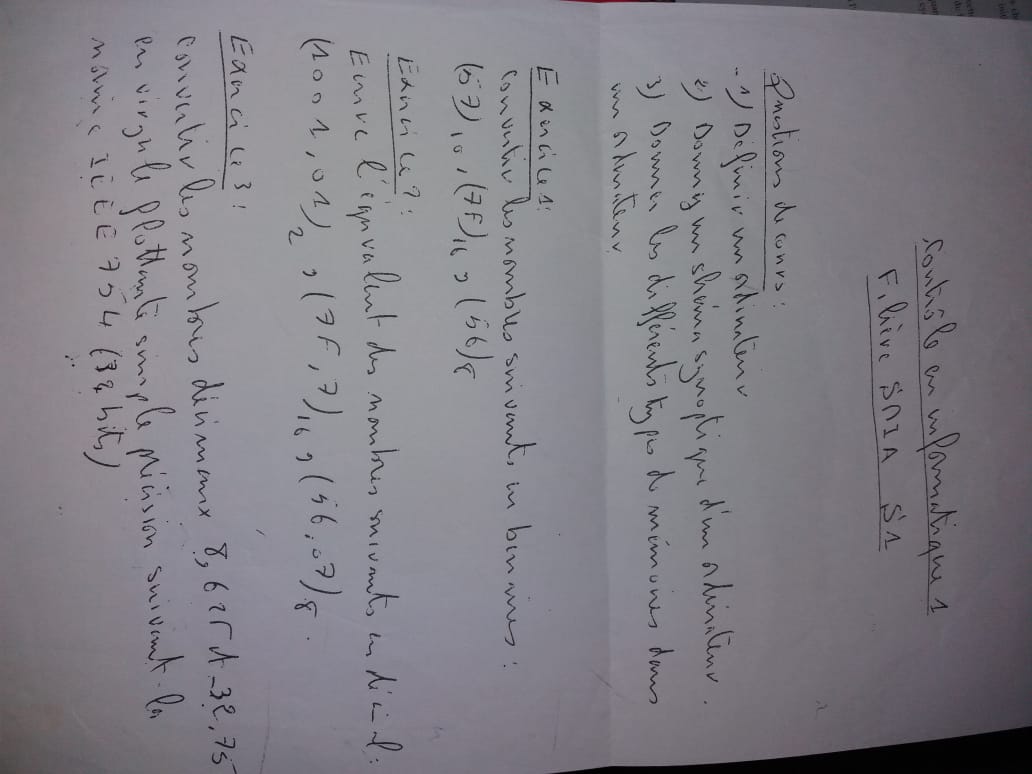 Contrôle en informatique 1
Filière SMIA S1
Questions de cours :
1) Définir un ordinateur
2) Donner un shéma synoptique d'un ordinateur.
3) Donner les différents types de mémoires dans
un ordinateur
Exercice 1:
Convertir les nombres suivants en binaires :
(57)10, (7F)16, (56)8
Exercice 2:
Ecrire l'équivalent des nombres suivants en décimal :
(1001,01)2, (7F,7)16, (56,07)8.
Exercice 3:
Convertir les nombres décimaux 8,625 et -32,75
en virgule flottante simple précision suivant la
norme IEEE 754 (32 bits)